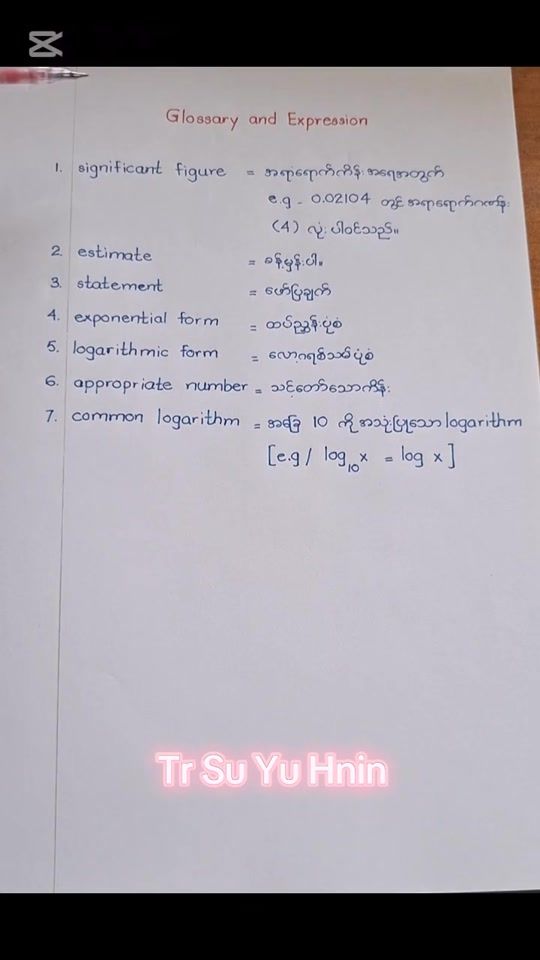 Glossary and Expression
1. significant figure = အရာရောက်ကိန်းအရေအတွက်
e.g - 0.02104 တွင် အရာရောက်ဂဏန်း
(4) လုံးပါဝင်သည်။
2. estimate = ခန့်မှန်းပါ။
3. statement = ဖော်ပြချက်
4. exponential form = ထပ်ညွှန်းပုံစံ
5. logarithmic form = လော့ဂရစ်သမ်ပုံစံ
6. appropriate number = သင့်တော်သောကိန်း
7. common logarithm = အခြေ 10 ကိုအသုံးပြုသော logarithm
[e.g / log₁₀x = log x]
Tr Su Yu Hnin